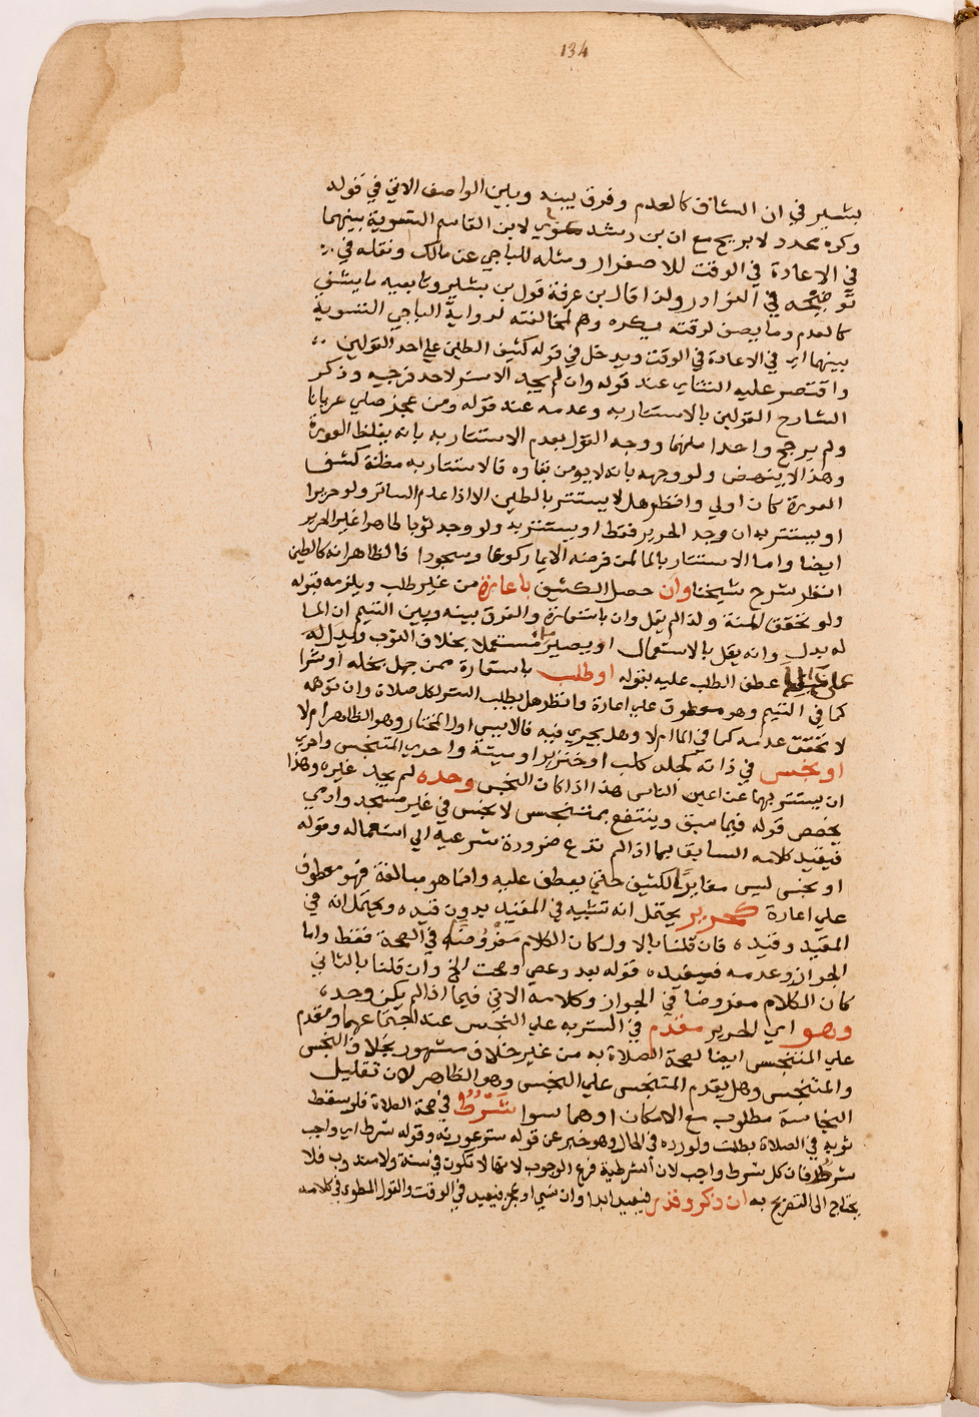 134
بشير في ان الشاف كالعدم وفرق بينه وبين الواصف الاتي في قوله
وكره محدد لا بريح مع ان بن رشد لابن القاسم التسوية بينهما
في الاعادة في الوقت للاصفرار ومثله للباجي عن مالك ونقله في
توضيحه في النوادر ولذا قال بن عرفة قول بن بشير وتابعيه ما يشف
كالعدم وما يصف لرقته يكره وهم لمخالفته لرواية الباجي التسوية
بينهما اي في الاعادة في الوقت ويدخل في قوله كثيف الطين علي احد القولين
واقتصر عليه التتاي عند قوله وان لم يجد الاستر لاحد فرجيه وذكر
الشارح القولين بالاستتار به وعدمه عند قوله ومن عجز صلي عريانا
ولم يرجح واحدا منهما ووجه القول بعدم الاستتار به بانه يغلظ العورة
وهذا لا ينهض ولو وجهه بانه لا يومن بقاوه فالاستتار به مظنة كشف
العورة كان اولي وانظر هل لا يستتر بالطين الا اذا عدم الساتر ولو حريرا
او يستتر به ان وجد الحرير فقط او يستتر به ولو وجد ثوبا طاهرا غير الحرير
ايضا واما الاستتار بالما لمن فرضه الايما ركوعا وسجودا فالظاهر انه كالطين
انظر شرح شيخنا وان حصل الكثيف باعارة من غير طلب ويلزمه قبوله
ولو تحقق المنة ولذا لم يقل وان باستعارة والفرق بينه وبين التيمم ان الما
له بدل وانه يقل بالاستعمال او يصير ما مستعملا بخلاف الثوب
عطف الطلب عليه بقوله او طلب باستعارة ممن جهل بخله او شرا
كما في التيمم وهو معطوف علي اعارة وانظر هل يطلب الستر لكل صلاة وان توهمه
لا تحقق عدمه كما في الما ام لا وهل يجري فيه فالايس اول المختار وهو الظاهر ام لا
او نجس في ذاته كجلد كلب او خنزير او ميتة واحدي المتنجس واحري
ان يستتر بهما عن اعين الناس هذا اذا كان النجس وحده لم يجد غيره وهذا
يخصص قوله فيما سبق وينتفع بمتنجس لا نجس في غير مسجد وادمي
فيقيد كلامه السابق بما اذا لم تدع ضرورة شرعية الي استعماله وقوله
او نجس ليس مغايرا لكثيف حتي يعطف عليه وانما هو مبالغة فهو معطوف
علي اعارة كحرير يحتمل انه تشبيه في المقيد بدون قيده ويحتمل انه في
المقيد وقيده فان قلنا بالاول كان الكلام مفروضا في الصحة فقط واما
الجواز وعدمه فسيفيده قوله بعد وعصي وصحت الخ وان قلنا بالثاني
كان الكلام مفروضا في الجواز وكلامه الاتي فيما اذا لم يكن وحده
وهو اي الحرير مقدم في الستر به علي النجس عند اجتماعهما ومقدم
علي المتنجس ايضا لصحة الصلاة به من غير خلاف مشهور بخلاف النجس
والمتنجس وهل يقدم المتنجس علي النجس وهو الظاهر لان تقليل
النجاسة مطلوب مع الامكان او هما سوا شرط في صحة الصلاة فلو سقط
ثوبه في الصلاة بطلت ولو رده في الحال وهو خبر عن قوله ستر عورته وقوله شرط اي واجب
شرط فان كل شرط واجب لان الشرطية فرع الوجوب لانها لا تكون في سنة ولا مندوب فلا
يحتاج الي التصريح به ان ذكر وقدر فيعيد ابدا وان نسي او عجز فيعيد في الوقت والقول المطوي في كلامه